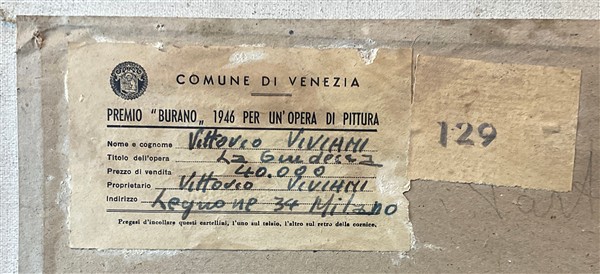 COMUNE DI VENEZIA
PREMIO "BURANO„ 1946 PER UN'OPERA DI PITTURA
Nome e cognome Vittorio VIVIANI
Titolo dell'opera La Giudecca
Prezzo di vendita 40.000
Proprietario Vittorio VIVIANI
Indirizzo Legnone 34 Milano
Pregasi d'incollare questi cartellini, l'uno sul telaio, l'altro sul retro della cornice.
129